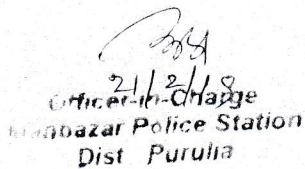 21/2/18
Officer-in-Charge
Manbazar Police Station
Dist Purulia